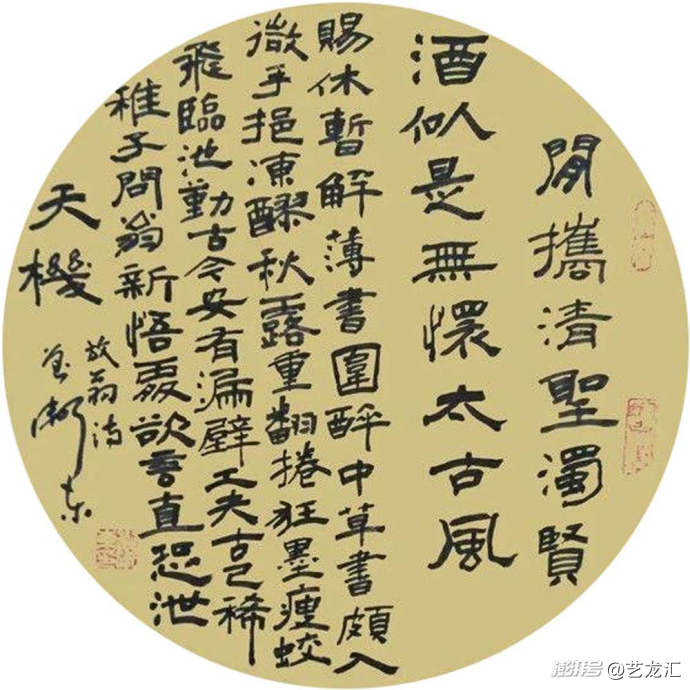 閒攜清聖濁賢
酒似是無懷太古風
賜休暫解薄書圍醉中草書頗入
微手挹凍醪秋露重翻捲狂墨瘦蛟
飛臨池勤古今安有漏壁工夫古已稀
稚子問翁新悟處欲言直恐泄
天機
放翁诗
澎湃号 @艺龙汇